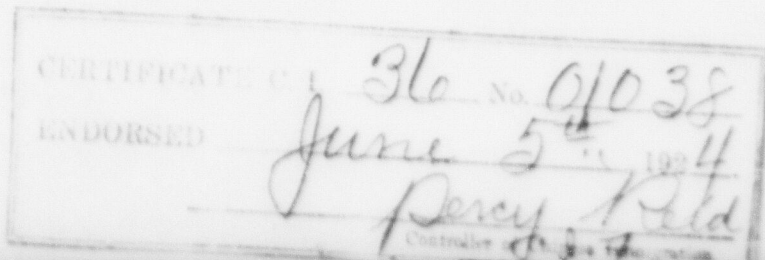 CERTIFICATE C.I. 36 No. 01038
ENDORSED June 5th 1924
Percy Reid
Controller